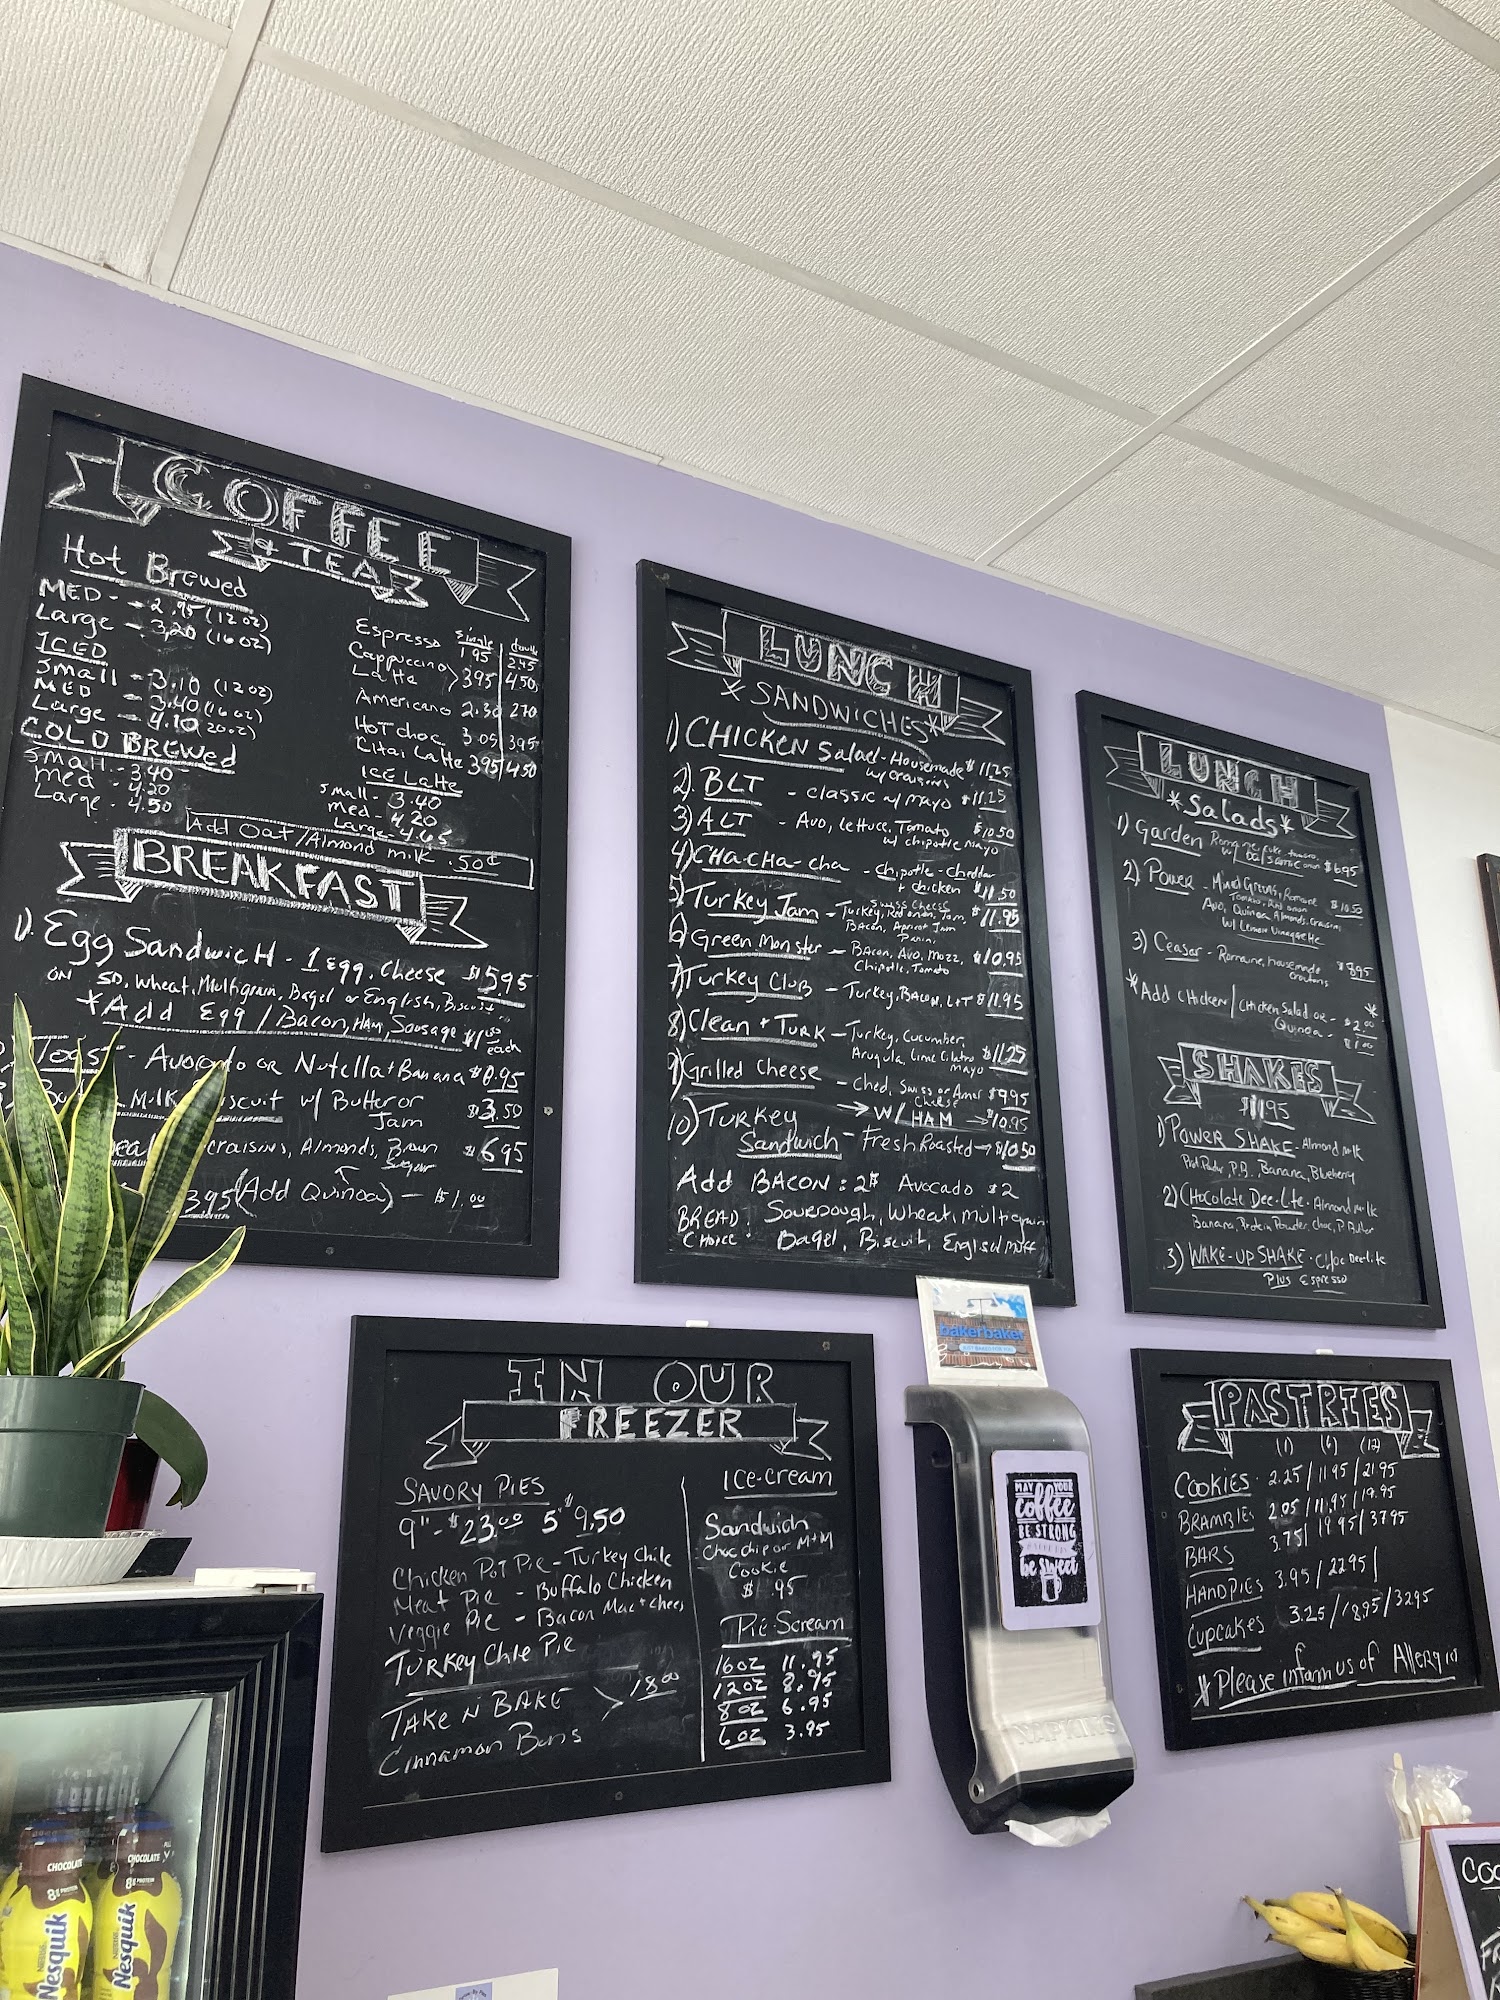 COFFEE
+ TEA
Hot Brewed
MED - 2.95 (12 oz)
Large - 3.20 (16 oz)
ICED
Small - 3.10 (12 oz)
MED - 3.40 (16 oz)
Large - 4.10 (20oz)
COLD BREWed
Small - 3.40
Med - 4.20
Large - 4.50
single double
Espresso 1.95 2.45
Cappuccino
Latte > 395 450
Americano 2.30 270
HoT choc 3.05 395
Latte 395 450
ICE Latte
small - 3.40
med - 4.20
Large - 4.65
Add Oat/Almond milk .50¢
BREAKFAST
1). Egg SandwicH - 1 Egg, Cheese $595
ON SD, Wheat, Multigrain, Bagel or English, Biscuit
*Add Egg / Bacon, HAM, Sausage $1.00 each
Toast - Avocado or Nutella + Banana $
Milk w/ Butter or $3.50
Jam
craisins, Almonds, Brown $695
Sugar
395 (Add Quinoa) - $1.00
LUNCH
* SANDWICHES *
1) CHICKEN Salad - Housemade $11.25
w/ craisins
2). BLT - classic w/ mayo $11.25
3) ALT - Avo, Lettuce, Tomato $10.50
w/ chipotle mayo
4) CHA-CHA-cha - chipotle - cheddar
+ chicken $11.50
5) Turkey Jam - Swiss Cheese
Turkey, Red onion, Tom, $11.95
Bacon, Apricot Jam
Panini
6) Green Monster - Bacon, Avo, Mozz, $10.95
Chipotle, Tomato
7) Turkey Club - Turkey, Bacon, LT $11.95
8) Clean + TURK - Turkey, Cucumber,
Arugula, Lime Cilantro $11.25
mayo
9) Grilled Cheese - Ched, Swiss or Amer $9.95
Cheese
→ W/ HAM → $10.95
10) TURKEY
Sandwich - Fresh Roasted → $10.50
Add BACON: 2$ Avocado $2
BREAD Sourdough, Wheat, multigrain
CHOICE: Bagel, Biscuit, English Muff
LUNCH
*Salads*
1) Garden Romaine, $695
w/ Balsamic
2) Power - Mixed Greens, Romaine $10.50
Tomato, Red onion
Avo, Quinoa, Almonds, Craisins
w/ Lemon Vinaigrette
3) Ceasar - Romaine, housemade $895
croutons
*Add CHICKEN / Chicken Salad or - $2.00 *
Quinoa - $1.00
SHAKES
1) POWER SHAKE - Almond milk
Prot. Powder, P.B., Banana, Blueberry
2) CHOCOlate Dee-Lite - Almond milk
Banana, Protein Powder, choc, P. Butter
3) WAKE-UP SHAKE - Choc Dee-lite
Plus Espresso
IN OUR
FREEZER
SAVORY PIES
9" - $23.00 5" $9.50
Chicken Pot Pie - Turkey Chile
Meat Pie - Buffalo Chicken
Veggie Pie - Bacon Mac + Chees
TURKEY Chile Pie
TAKE N BAKE > 18.00
Cinnamon Buns
ICE-cream
Sandwich
Choc chip or M+M
Cookie
Pie-Scream
16oz 11.95
12oz 8.95
8oz 6.95
6oz 3.95
PASTRIES
(1) (6) (12)
COOKIES 2.25 / 11.95 / 21.95
BRAMBIES 2.05 / 11.95 / 19.95
BARS 3.75 / 19.95 / 37.95
HANDPIES 3.95 / 22.95 /
Cupcakes 3.25 / 18.95 / 32.95
*Please inform us of Allergies
bakerbaker
MAY YOUR
coffee
BE STRONG
be sweet
NAPKINS
CHOCOLATE
8g PROTEIN
Nesquik
CHOCOLATE
8g PROTEIN
Nesquik